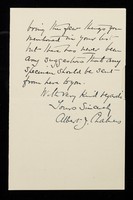 bring the few things you
mentioned in your list
but there has never been
any suggestion that any
specimen should be sent
from here to you.
With very kind regards
Yours Sincerely
Albert J.